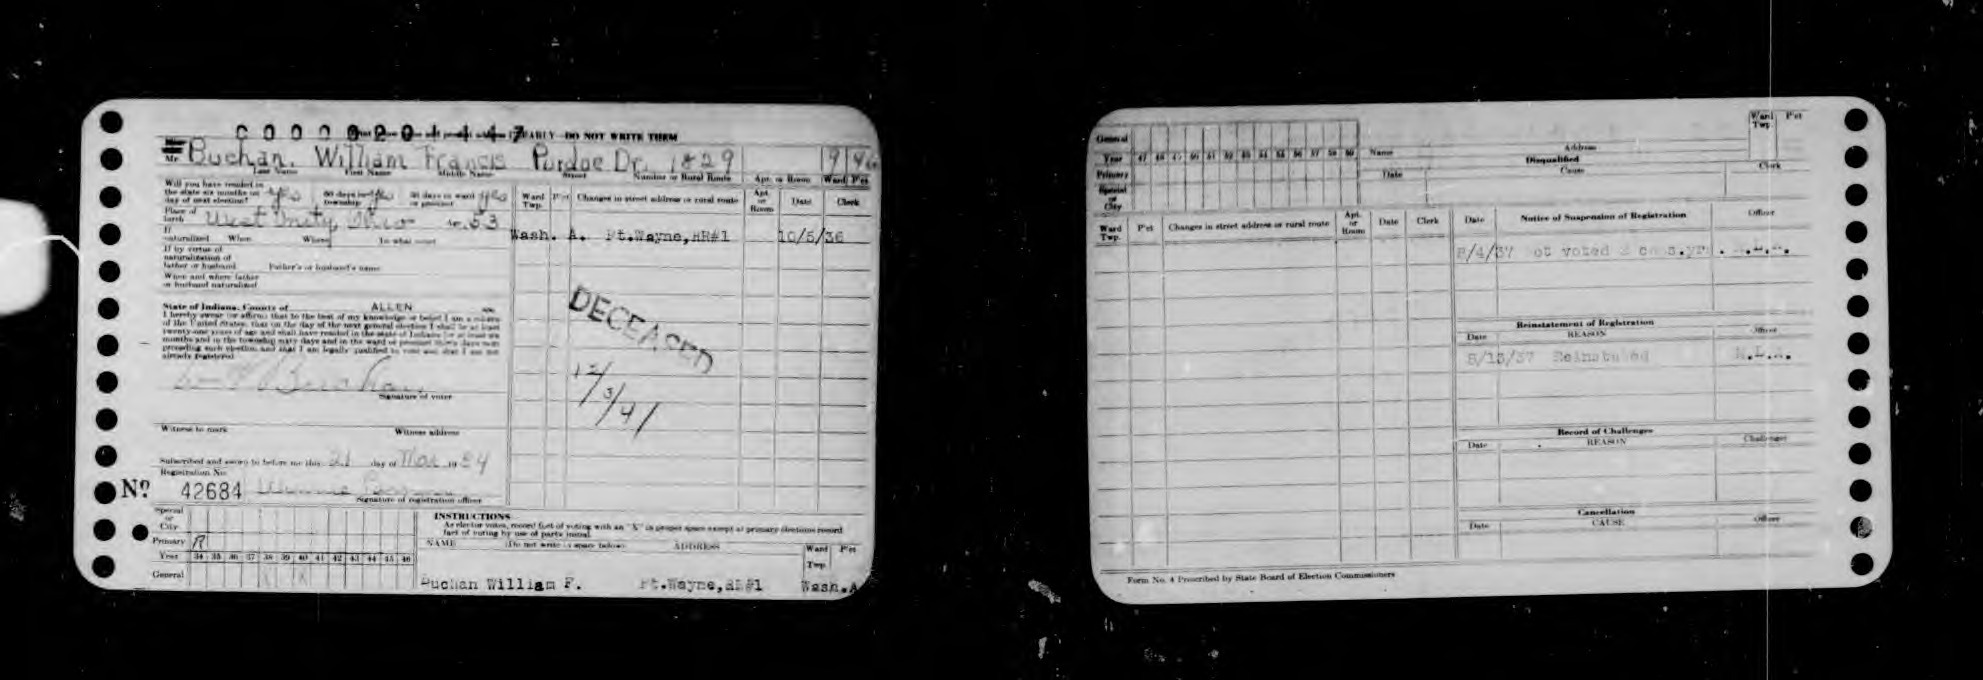 PLEASE DO NOT WRITE THEM
Mr. Buchan, William Francis Purdue Dr. 1829 9 46
Last Name First Name Middle Name Street Number or Rural Route Apt. or Room Ward P'ct
Will you have resided in
the state six months on yes 60 days in township yes 30 days in ward or precinct yes
day of next election?
Place of birth West Unity, Ohio Age 53
If naturalized When Where To what court
If by virtue of
naturalization of
father or husband Father's or husband's name
When and where father
or husband naturalized
State of Indiana, County of ALLEN ss:
I hereby swear (or affirm) that to the best of my knowledge or belief I am a citizen
of the United States, that on the day of the next general election I shall be at least
twenty-one years of age and shall have resided in the state of Indiana for at least six
months and in the township sixty days and in the ward or precinct thirty days next
preceding such election and that I am legally qualified to vote and that I am not
already registered.
Wm F Buchan
Signature of voter
Witness to mark Witness address
Subscribed and sworn to before me this 21 day of Mar 1934
Registration No.
No 42684
Signature of registration officer
Ward Twp. P'ct Changes in street address or rural route Apt. or Room Date Clerk
Wash. A. Ft.Wayne,RR#1 10/5/36
DECEASED
12/3/41
Special or City
Primary R
Year 34 35 36 37 38 39 40 41 42 43 44 45 46
General X X
INSTRUCTIONS
As elector votes, record fact of voting with an "X" in proper space except at primary elections record
fact of voting by use of party initial.
NAME (Do not write in space below) ADDRESS Ward Twp. P'ct
Buchan William F. Ft.Wayne,RR#1 Wash.A
General
Year 47 48 49 50 51 52 53 54 55 56 57 58 59
Primary
Special or City
Name Address Ward Twp. P'ct
Disqualified
Date Cause Clerk
Ward Twp. P'ct Changes in street address or rural route Apt. or Room Date Clerk
Date Notice of Suspension of Registration Officer
8/4/37 ot voted 2 cons.yrs.
Reinstatement of Registration
Date REASON Officer
8/13/37 Reinstated
Record of Challenges
Date REASON Challenger
Cancellation
Date CAUSE Officer
Form No. 4 Prescribed by State Board of Election Commissioners